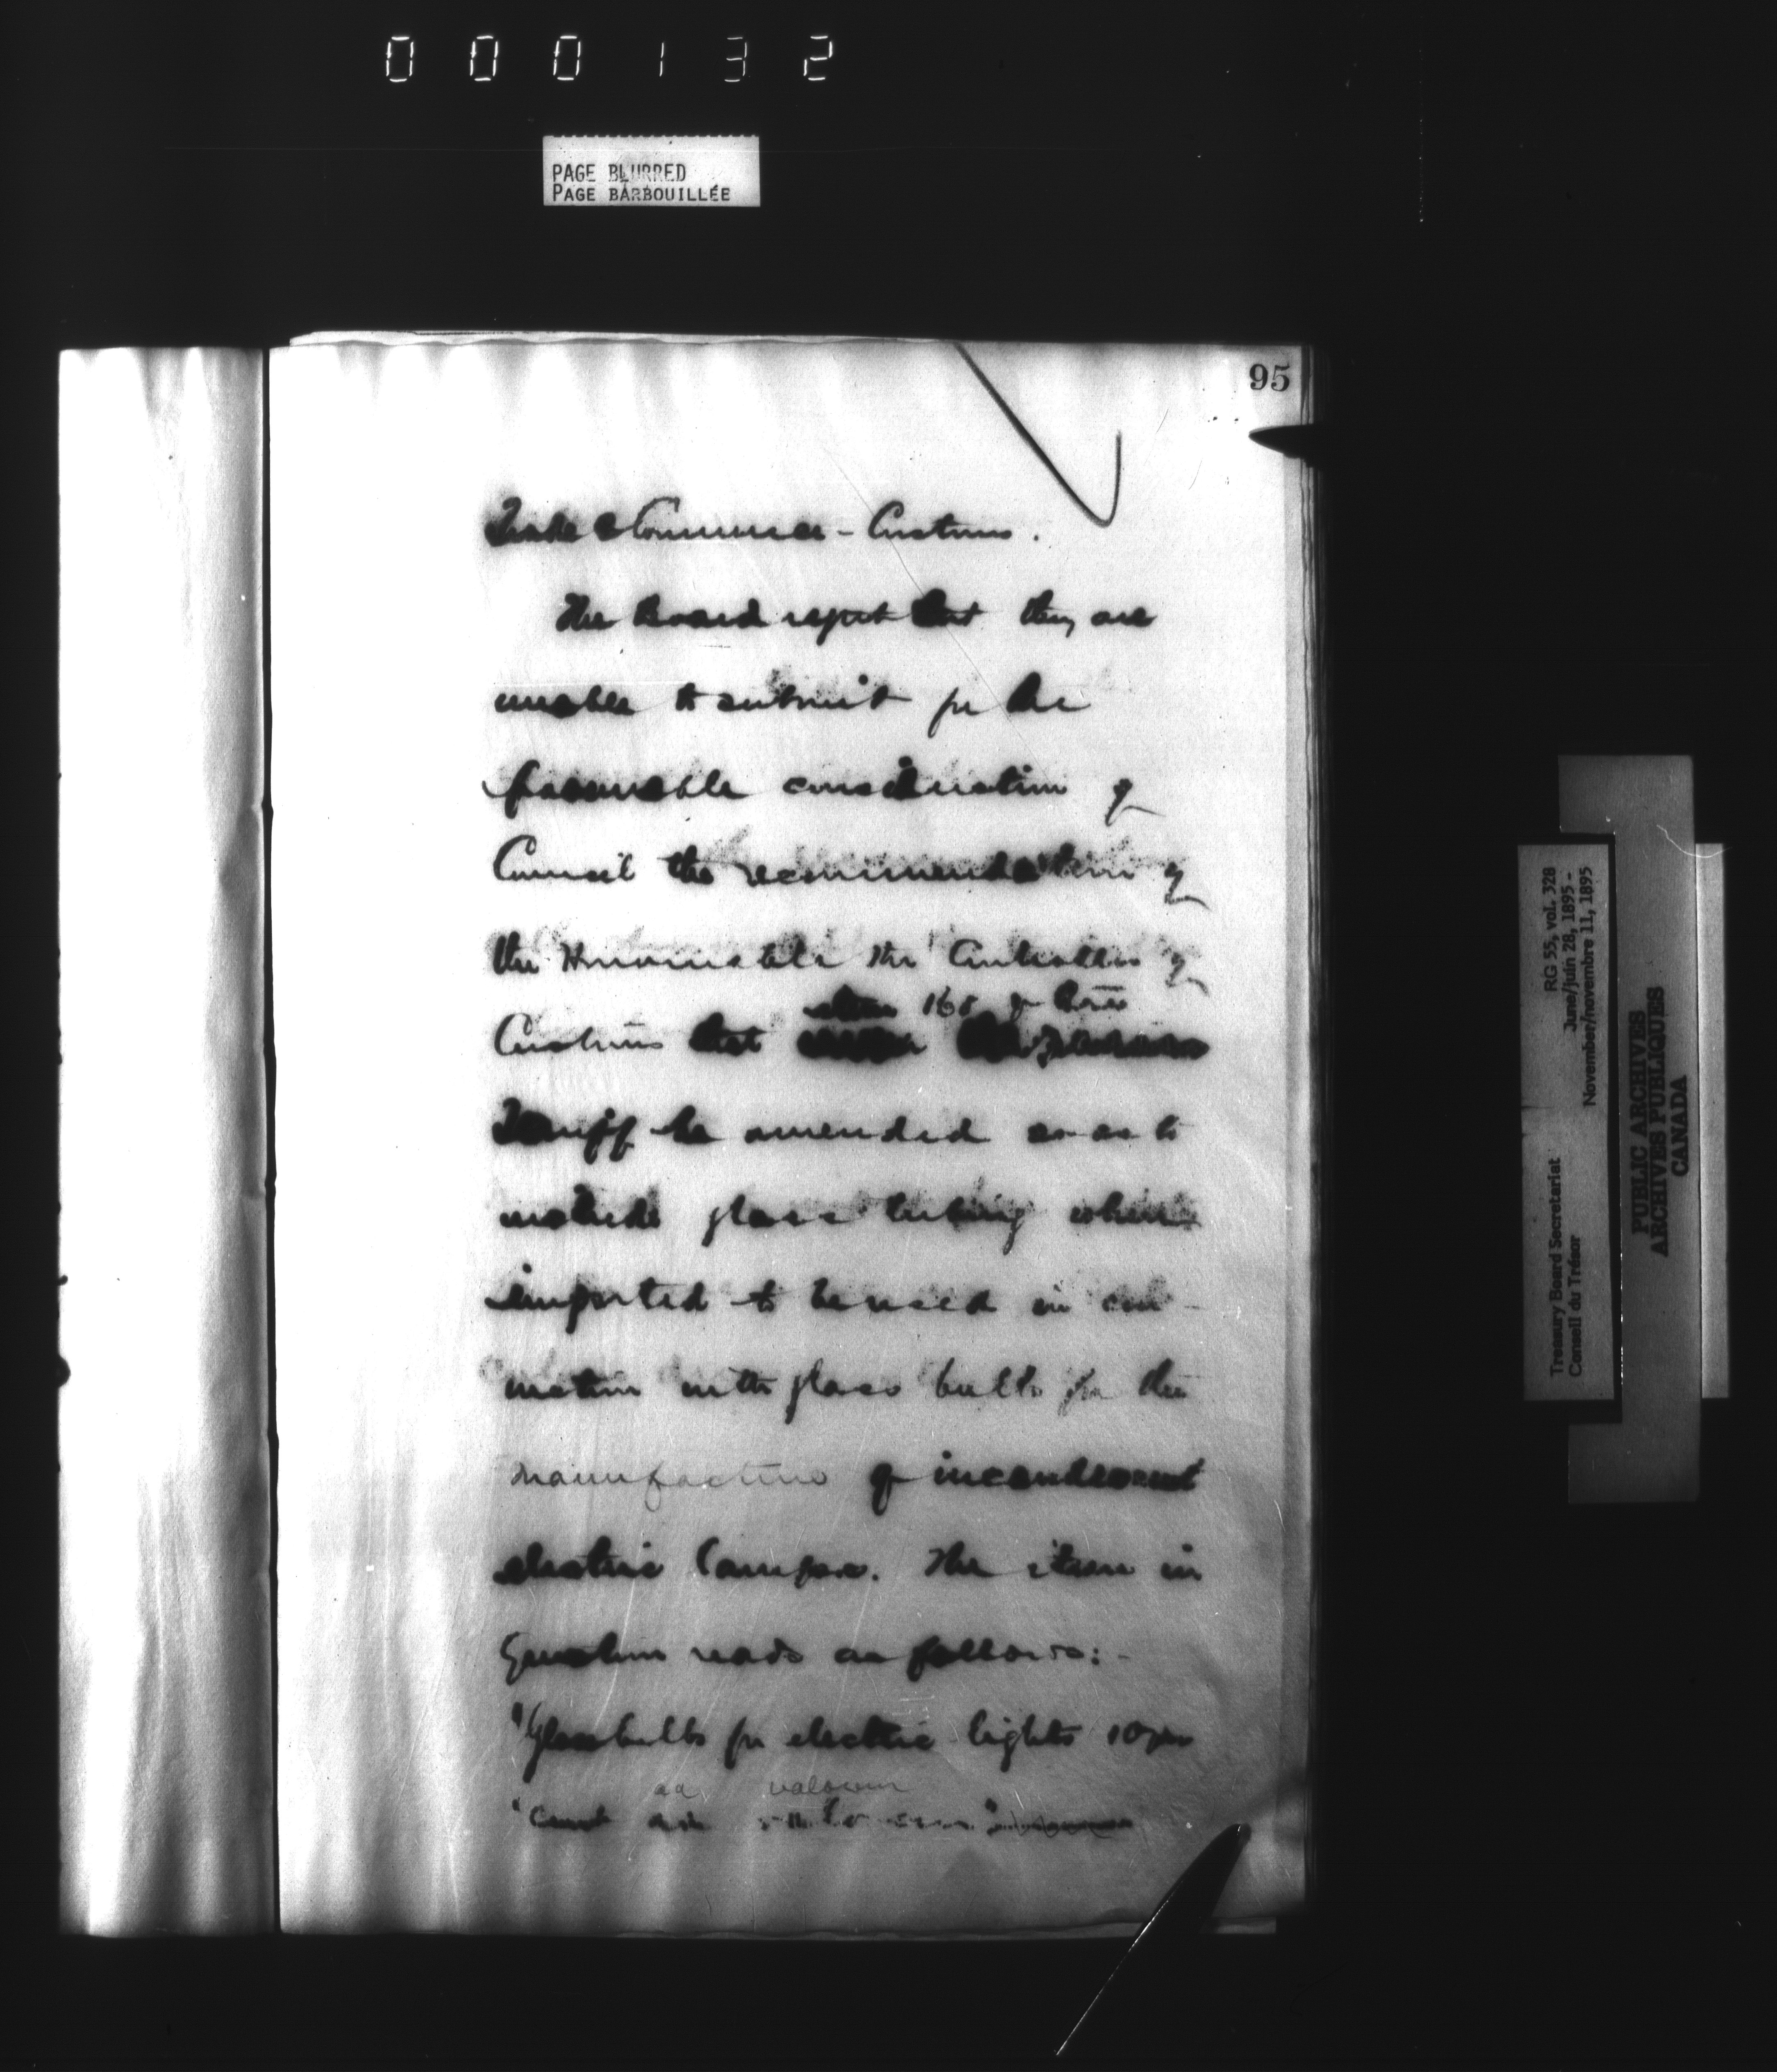 000132
PAGE BLURRED
PAGE BARBOUILLÉE
95
Trade & Commerce - Customs.
The Board regret that they are
unable to submit for the
favourable consideration of
Council the recommendation of
the Honourable the Controller of
item 168 of
Customs that
Tariff be amended so as to
include glass tubing when
imported to be used in con-
nection with glass bulbs for the
manufacture of incandescent
electric lamps. The item in
Question reads as follows:-
"Glass bulbs for electric lights 10 per
ad valorem
"cent ad valorem"
RG 55, vol. 328
June/juin 28, 1895 -
November/novembre 11, 1895
Treasury Board Secretariat
Conseil du Trésor
PUBLIC ARCHIVES
ARCHIVES PUBLIQUES
CANADA